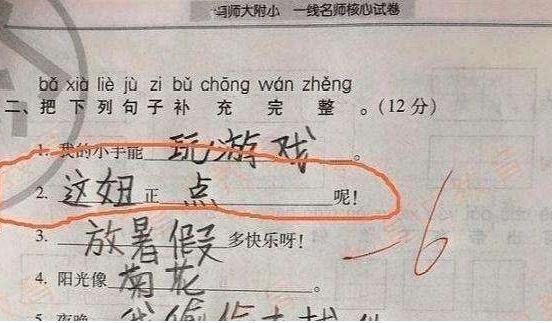 冯师大附小 一线名师核心试卷
bǎ xià liè jù zi bǔ chōng wán zhěng
二、把下列句子补充完整。(12分)
1. 我的小手能 玩游戏 。
2. 这妞正 点 呢!
3. 放暑假 多快乐呀!
-6
4. 阳光像 菊花 。
5. 夜晚